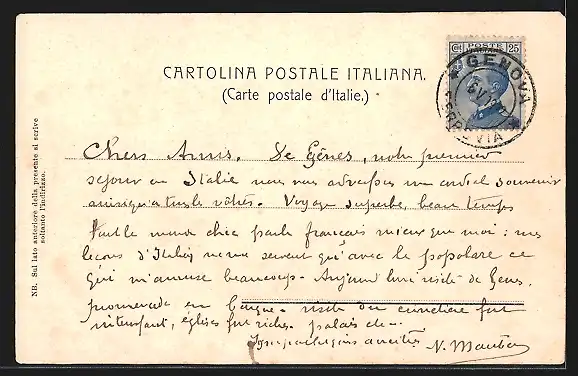 CARTOLINA POSTALE ITALIANA.
(Carte postale d'Italie.)
POSTE
25
GENOVA
FERROVIA
NB. Sul lato anteriore della presente si scrive
soltanto l'indirizzo.
Chers Amis. De Gênes, notre premier
sejour en Italie nous vous adressons un cordial souvenir
ainsi qu'a tous les vôtres. Voyage superbe beau temps
Tout le monde chic parle français mieux que moi: mes
leçons d'Italien ne me servent qu'avec le popolare ce
qui m'amuse beaucoup. Aujourd'hui visite de Gênes.
promenade en barque. visite du cimetière fort
interessant, églises fort riches. palais
amitiés